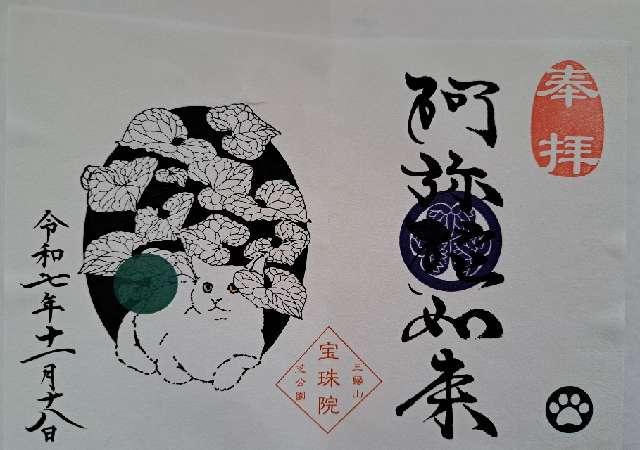 奉拝
阿弥陀如来
三縁山
宝珠院
芝公園
令和七年十一月十八日